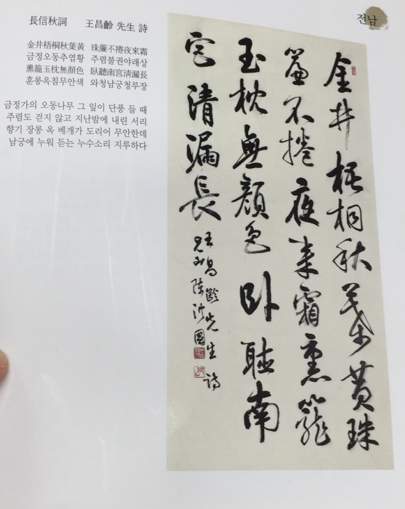 長信秋詞 王昌齡 先生 詩
金井梧桐秋葉黃 珠簾不捲夜來霜
금정오동추엽황 주렴불권야래상
熏籠玉枕無顔色 臥聽南宮清漏長
훈롱옥침무안색 와청남궁청루장
금정가의 오동나무 그 잎이 단풍 들 때
주렴도 걷지 않고 지난밤에 내린 서리
향기 장롱 옥 베개가 도리어 무안한데
남궁에 누워 듣는 누수소리 지루하다
전남
金井梧桐秋葉黃珠
簾不捲夜來霜熏籠
玉枕無顔色臥聽南
宮清漏長
王昌齡先生詩